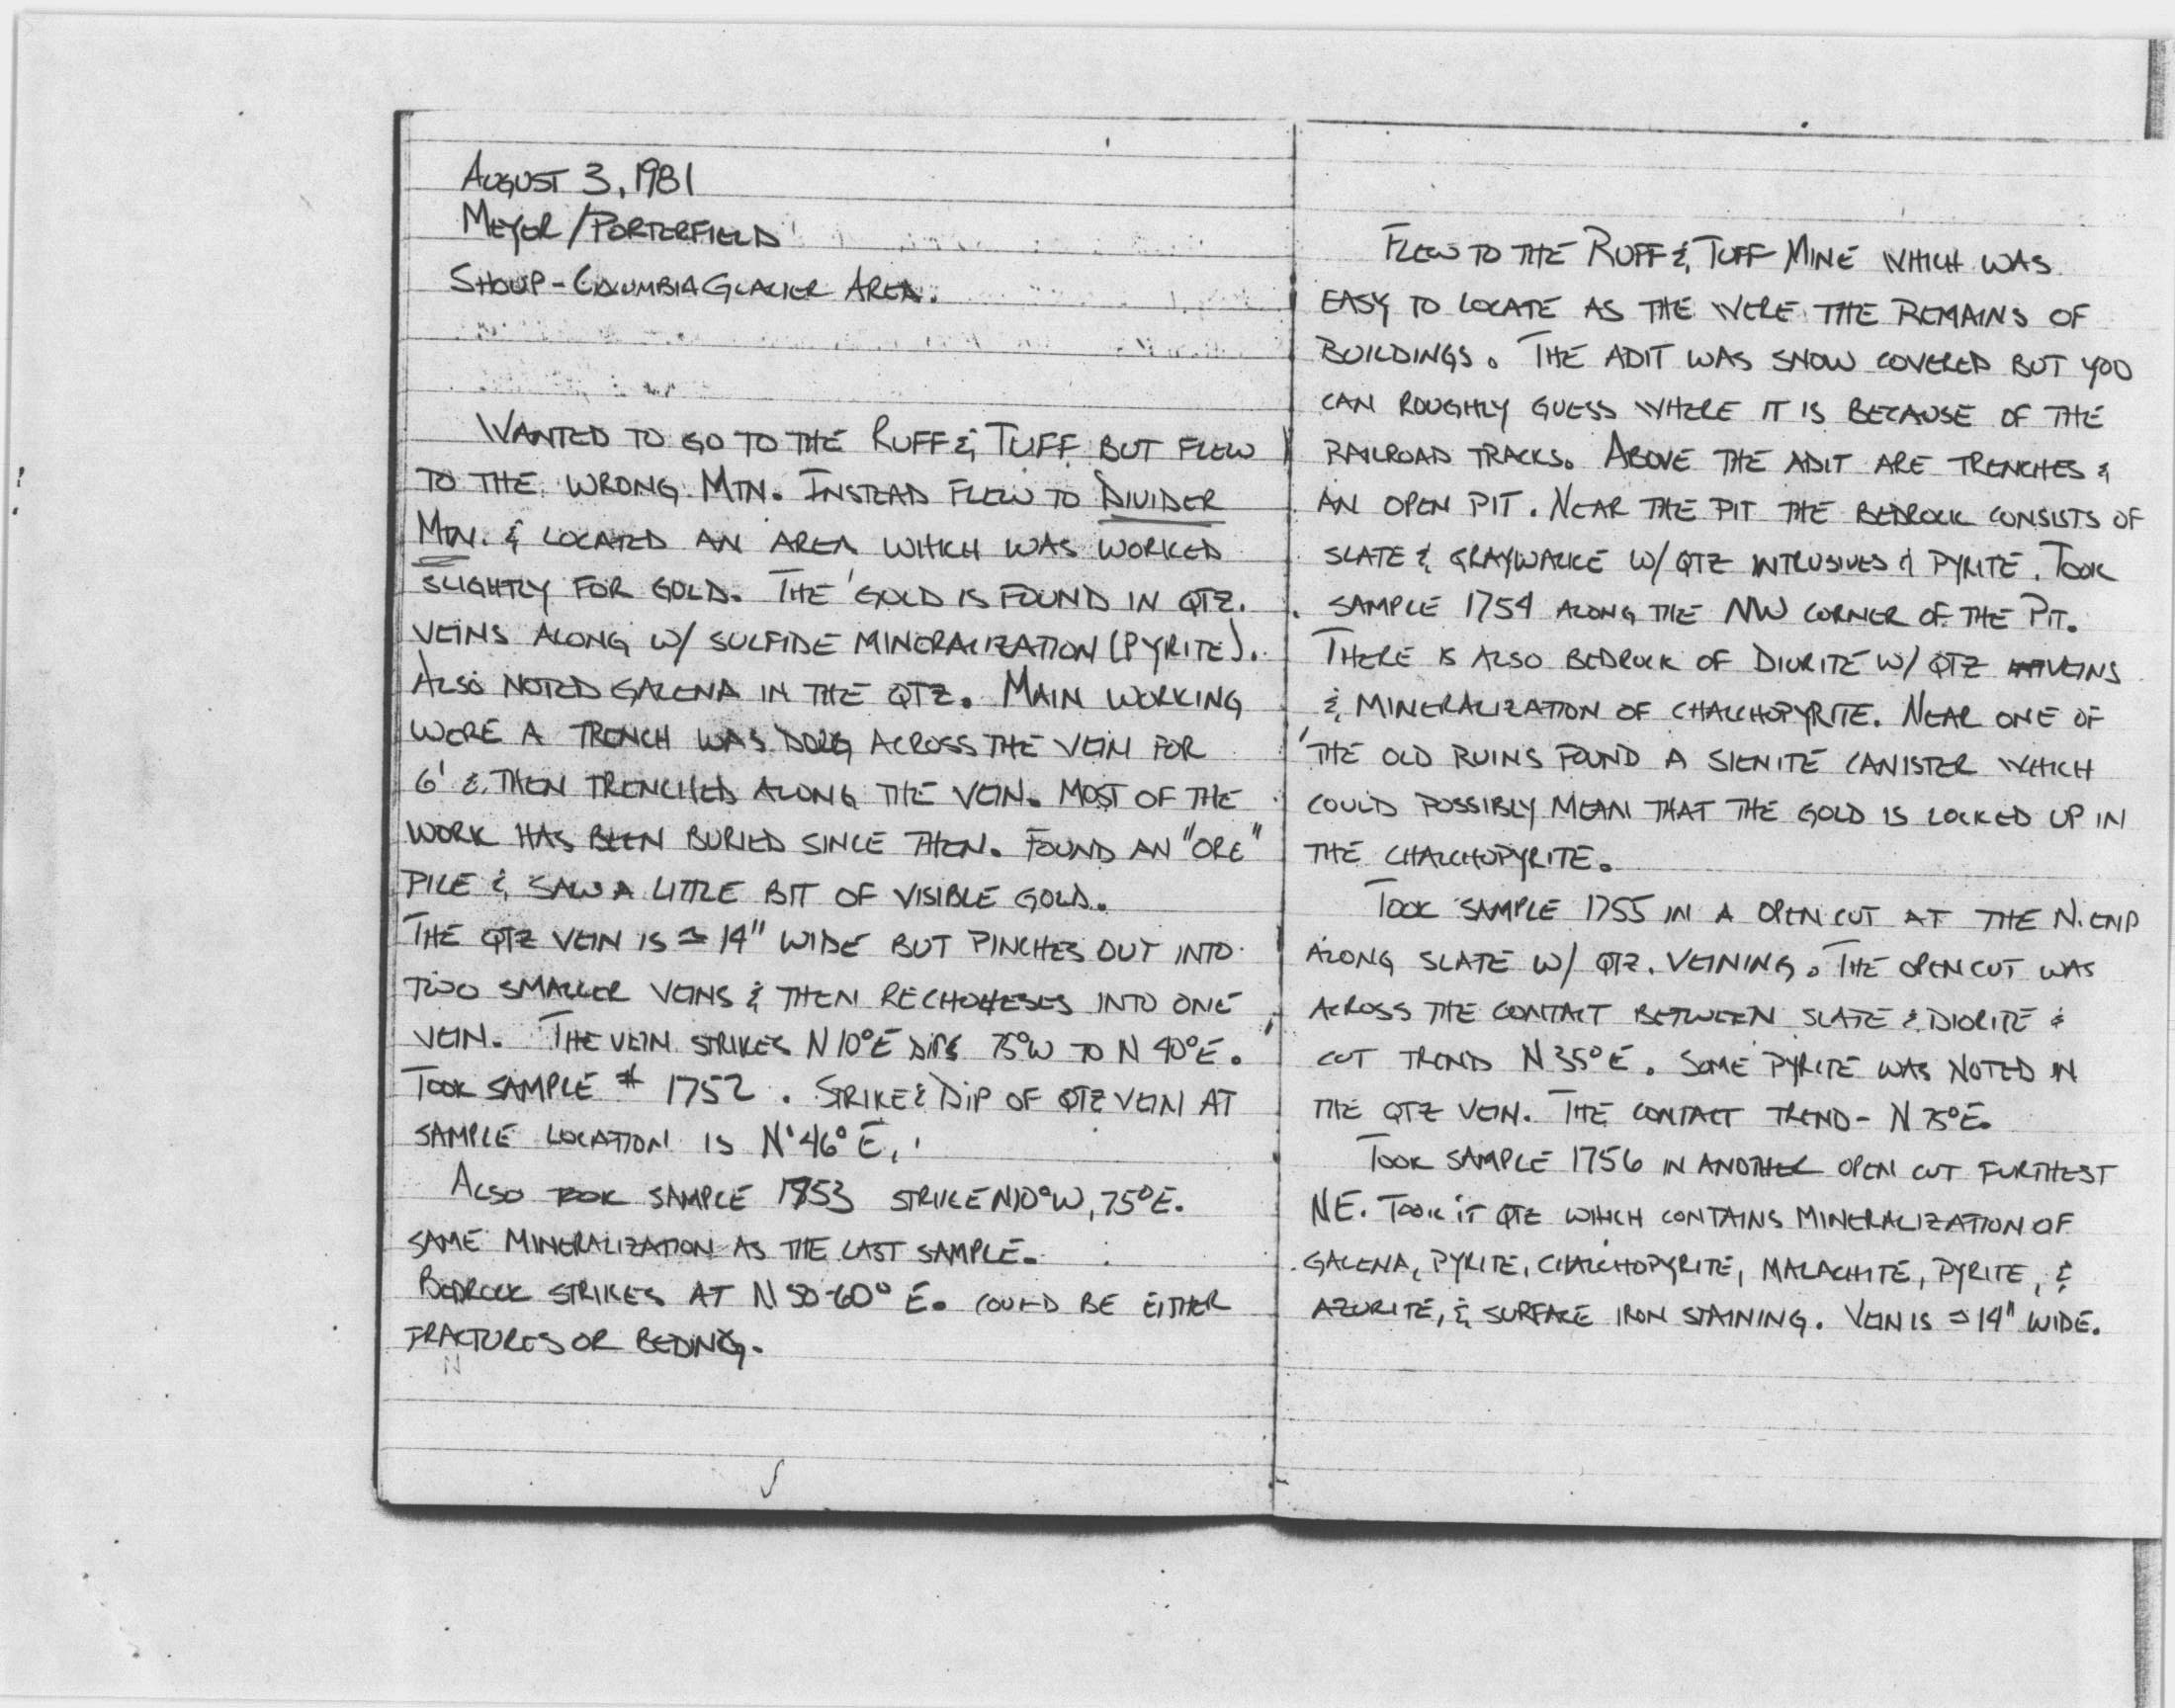 AUGUST 3, 1981
MEYER/PORTERFIELD
SHOUP-COLUMBIA GLACIER AREA.
WANTED TO GO TO THE RUFF & TUFF BUT FLEW
TO THE WRONG MTN. INSTEAD FLEW TO DIVIDER
MTN. & LOCATED AN AREA WHICH WAS WORKED
SLIGHTLY FOR GOLD. THE GOLD IS FOUND IN QTZ.
VEINS ALONG W/ SULFIDE MINERALIZATION (PYRITE).
ALSO NOTED GALENA IN THE QTZ. MAIN WORKING
WERE A TRENCH WAS DUG ACROSS THE VEIN FOR
6' & THEN TRENCHED ALONG THE VEIN. MOST OF THE
WORK HAS BEEN BURIED SINCE THEN. FOUND AN "ORE"
PILE & SAW A LITTLE BIT OF VISIBLE GOLD.
THE QTZ VEIN IS ≃ 14" WIDE BUT PINCHES OUT INTO
TWO SMALLER VEINS & THEN INTO ONE
VEIN. THE VEIN STRIKES N 10°E DIPS 75°W TO N 40°E.
TOOK SAMPLE # 1752. STRIKE & DIP OF QTZ VEIN AT
SAMPLE LOCATION IS N 46° E,
ALSO TOOK SAMPLE 1753 STRIKE N10°W, 75°E.
SAME MINERALIZATION AS THE LAST SAMPLE.
BEDROCK STRIKES AT N 50-60° E. COULD BE EITHER
FRACTURES OR BEDING.
FLEW TO THE RUFF & TUFF MINE WHICH WAS
EASY TO LOCATE AS THE WERE THE REMAINS OF
BUILDINGS. THE ADIT WAS SNOW COVERED BUT YOU
CAN ROUGHLY GUESS WHERE IT IS BECAUSE OF THE
RAILROAD TRACKS. ABOVE THE ADIT ARE TRENCHES &
AN OPEN PIT. NEAR THE PIT THE BEDROCK CONSISTS OF
SLATE & GRAYWACKE W/ QTZ INTRUSIVES & PYRITE. TOOK
SAMPLE 1754 ALONG THE NW CORNER OF THE PIT.
THERE IS ALSO BEDROCK OF DIORITE W/ QTZ VEINS
& MINERALIZATION OF CHALCHOPYRITE. NEAR ONE OF
THE OLD RUINS FOUND A SIENITE CANISTER WHICH
COULD POSSIBLY MEAN THAT THE GOLD IS LOCKED UP IN
THE CHALCHOPYRITE.
TOOK SAMPLE 1755 IN A OPEN CUT AT THE N. END
ALONG SLATE W/ QTZ. VEINING. THE OPEN CUT WAS
ACROSS THE CONTACT BETWEEN SLATE & DIORITE &
CUT TREND N 35° E. SOME PYRITE WAS NOTED IN
THE QTZ VEIN. THE CONTACT TREND - N 75° E.
TOOK SAMPLE 1756 IN ANOTHER OPEN CUT FURTHEST
NE. TOOK IT QTZ WHICH CONTAINS MINERALIZATION OF
GALENA, PYRITE, CHALCHOPYRITE, MALACHITE, PYRITE, &
AZURITE, & SURFACE IRON STAINING. VEIN IS ≃ 14" WIDE.